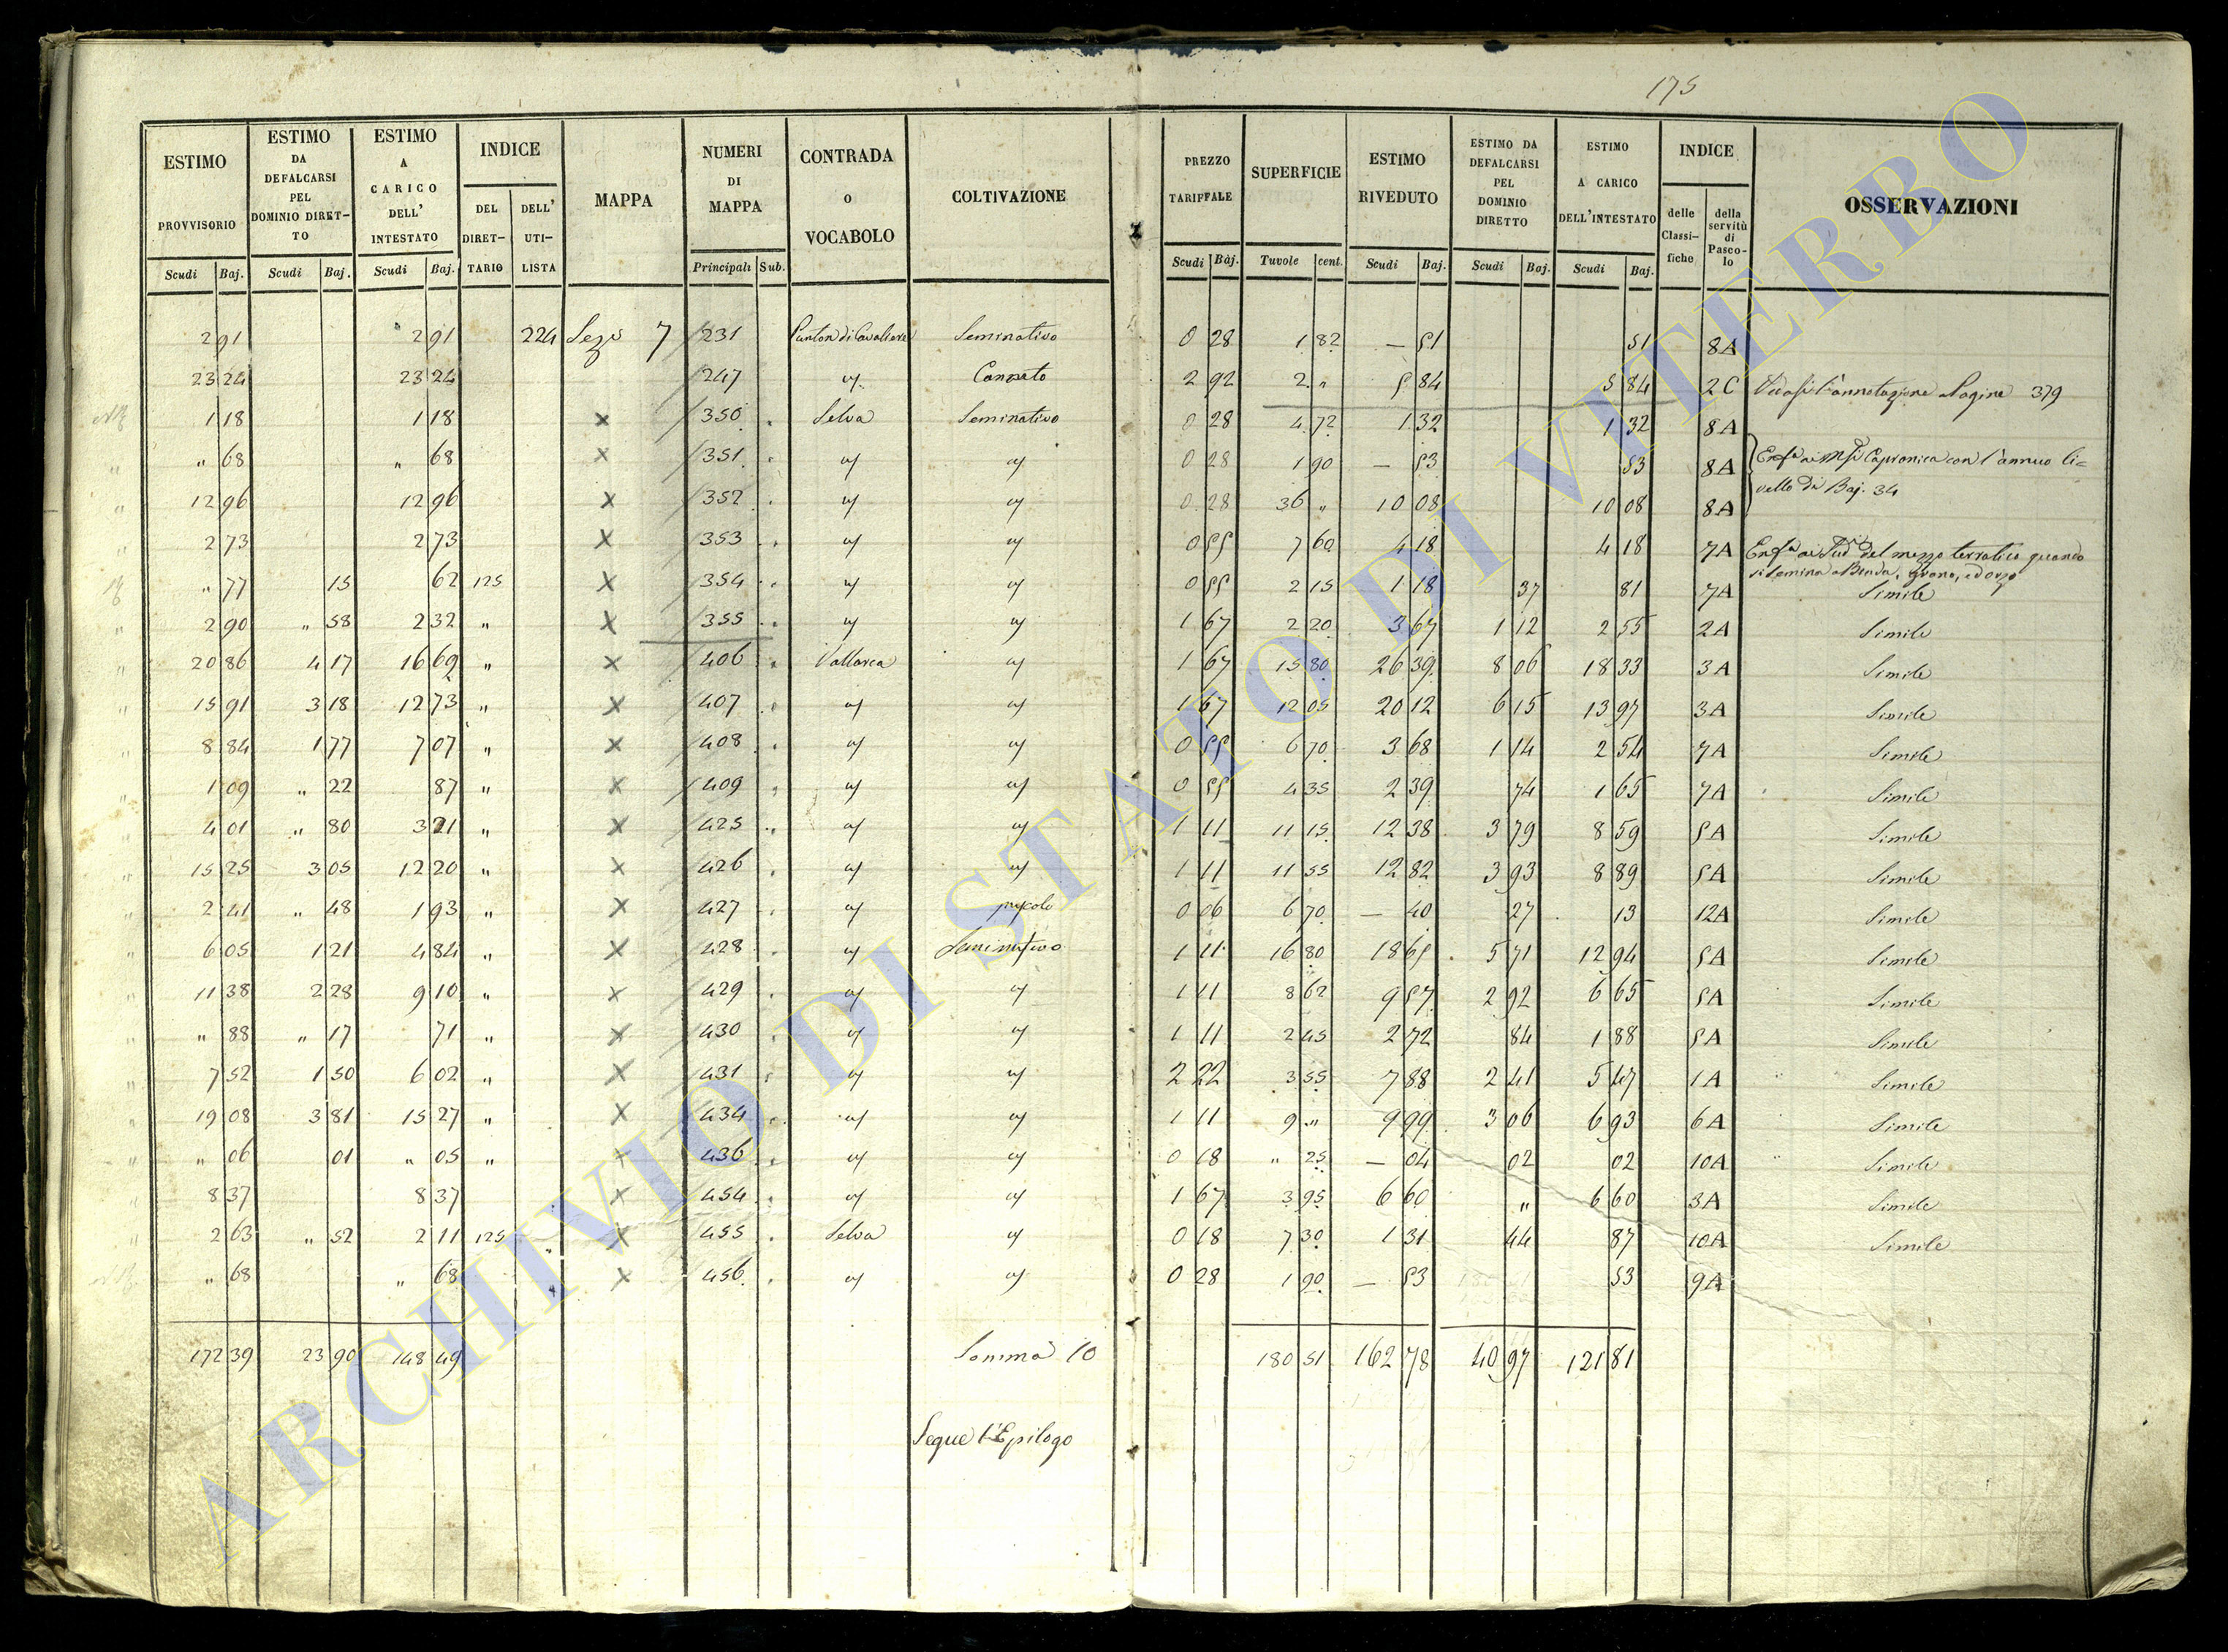 175
ESTIMO PROVVISORIO | ESTIMO DA DEFALCARSI PEL DOMINIO DIRET-TO | ESTIMO A CARICO DELL' INTESTATO | INDICE DEL DIRET-TARIO | DELL' UTI-LISTA | MAPPA | NUMERI DI MAPPA | CONTRADA o VOCABOLO | COLTIVAZIONE | PREZZO TARIFFALE | SUPERFICIE | ESTIMO RIVEDUTO | ESTIMO DA DEFALCARSI PEL DOMINIO DIRETTO | ESTIMO A CARICO DELL'INTESTATO | INDICE delle Classi-fiche | della servitù di Pasco-lo | OSSERVAZIONI
Scudi Baj. | Scudi Baj. | Scudi Baj. | Principali Sub. | Scudi Baj. | Tavole cent. | Scudi Baj. | Scudi Baj. | Scudi Baj.
2 91 2 91 224 Sez 7 231 Punton di Cavaliere Seminativo 0 28 1 82 — 51 51 8A
23 24 23 24 247 Canneto 2 92 2 " 5 84 5 84 2C Vedasi l'annotazione Pagina 379
1 18 1 18 x 350 Selva Seminativo 0 28 4 72 1 32 1 32 8A
" 68 " 68 x 351 0 28 1 90 — 53 53 8A Capronica con l'annuo li=
12 96 12 96 x 352 0 28 36 " 10 08 10 08 8A vello di Baj. 34
2 73 2 73 x 353 0 55 7 60 4 18 4 18 7A del mezzo terratico quando
si semina Biada, Grano, ed orzo
" 77 15 62 125 x 354 0 55 2 15 1 18 37 81 7A Simile
2 90 " 58 2 32 " x 355 1 67 2 20 3 67 1 12 2 55 2A Simile
20 86 4 17 16 69 " x 406 Vallarca 1 67 15 80 26 39 8 06 18 33 3A Simile
15 91 3 18 12 73 " x 407 1 67 12 05 20 12 6 15 13 97 3A Simile
8 84 1 77 7 07 " x 408 0 55 6 70 3 68 1 14 2 54 7A Simile
1 09 " 22 87 " x 409 0 55 4 35 2 39 74 1 65 7A Simile
4 01 " 80 3 21 " x 425 1 11 11 15 12 38 3 79 8 59 5A Simile
15 25 3 05 12 20 " x 426 1 11 11 55 12 82 3 93 8 89 5A Simile
2 41 " 48 1 93 " x 427 pascolo 0 06 6 70 — 40 27 13 12A Simile
6 05 1 21 4 84 " x 428 Seminativo 1 11 16 80 18 65 5 71 12 94 5A Simile
11 38 2 28 9 10 " x 429 1 11 8 62 9 57 2 92 6 65 5A Simile
" 88 " 17 71 " x 430 1 11 2 45 2 72 84 1 88 5A Simile
7 52 1 50 6 02 " x 431 2 22 3 55 7 88 2 41 5 47 1A Simile
19 08 3 81 15 27 " x 434 1 11 9 " 9 99 3 06 6 93 6A Simile
" 06 01 " 05 " x 436 0 18 " 25 — 04 02 02 10A Simile
8 37 8 37 x 454 1 67 3 95 6 60 " 6 60 3A Simile
2 63 " 52 2 11 125 x 455 Selva 0 18 7 30 1 31 44 87 10A Simile
" 68 " 68 x 456 0 28 1 90 — 53 53 9A
172 39 23 90 148 49 Somma 10 180 51 162 78 40 97 121 81
Segue l'Epilogo
ARCHIVIO DI STATO DI VITERBO